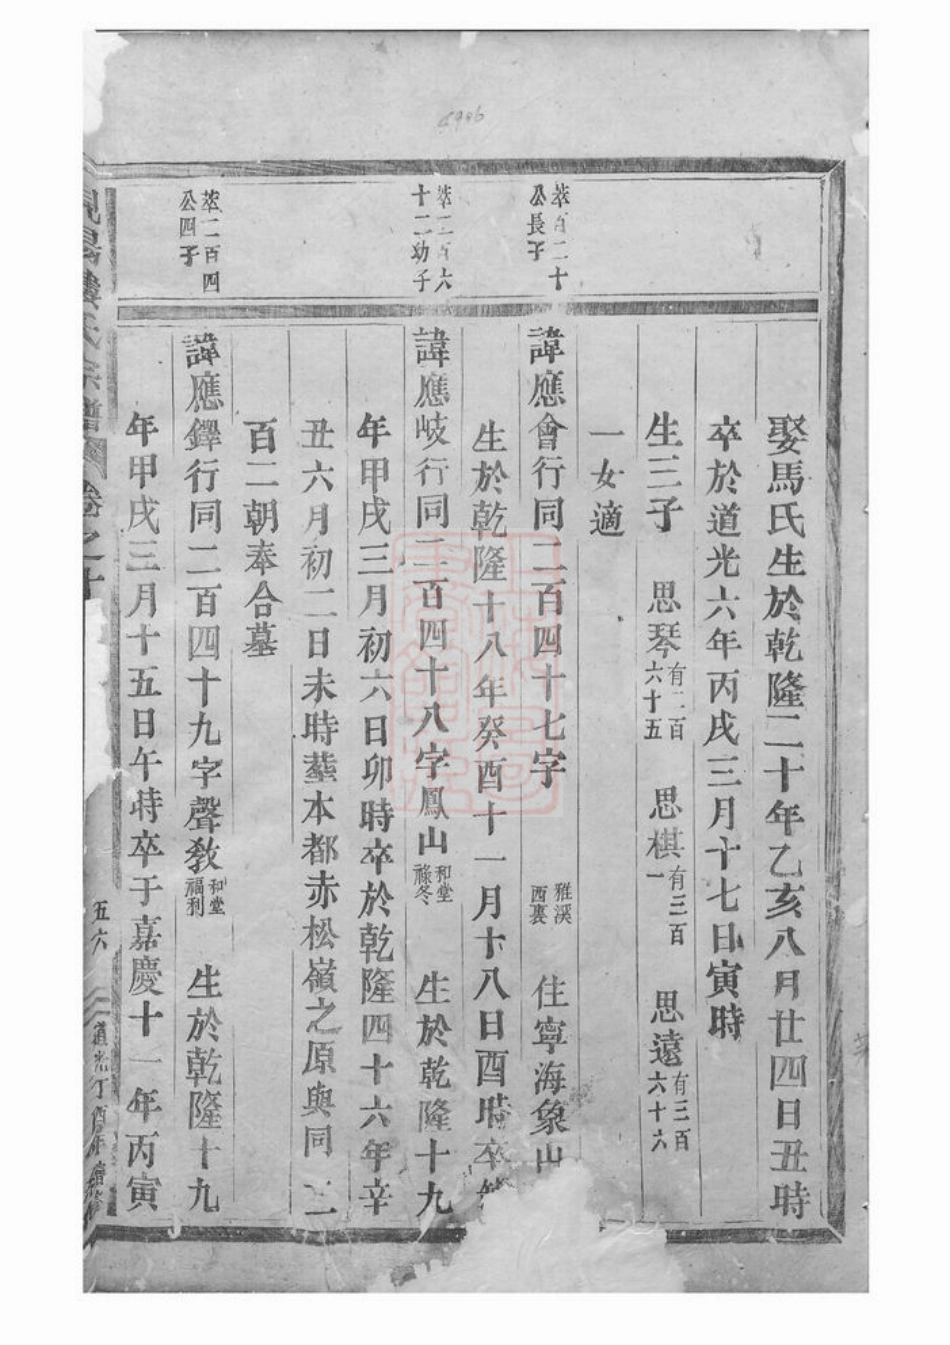 娶馬氏生於乾隆二十年乙亥八月廿四日丑時
卒於道光六年丙戌三月十七日寅時
生三子 思琴有二百六十五 思棋有三百一 思遠有三百六十六
一女適
萃 二十
公長子
諱應會行同二百四十七字 雅溪西裏 住寧海象山
生於乾隆十八年癸酉十一月十八日酉時卒
萃二百六
十二幼子
諱應岐行同二百四十八字鳳山和堂祿冬 生於乾隆十九
年甲戌三月初六日卯時卒於乾隆四十六年辛
丑六月初二日未時塟本都赤松嶺之原與同二
百二朝奉合墓
萃二百四
公四子
諱應鐸行同二百四十九字聲教和堂福利 生於乾隆十九
年甲戌三月十五日午時卒于嘉慶十一年丙寅
樓氏宗譜 卷之十 五六 道光丁酉年續修
6906